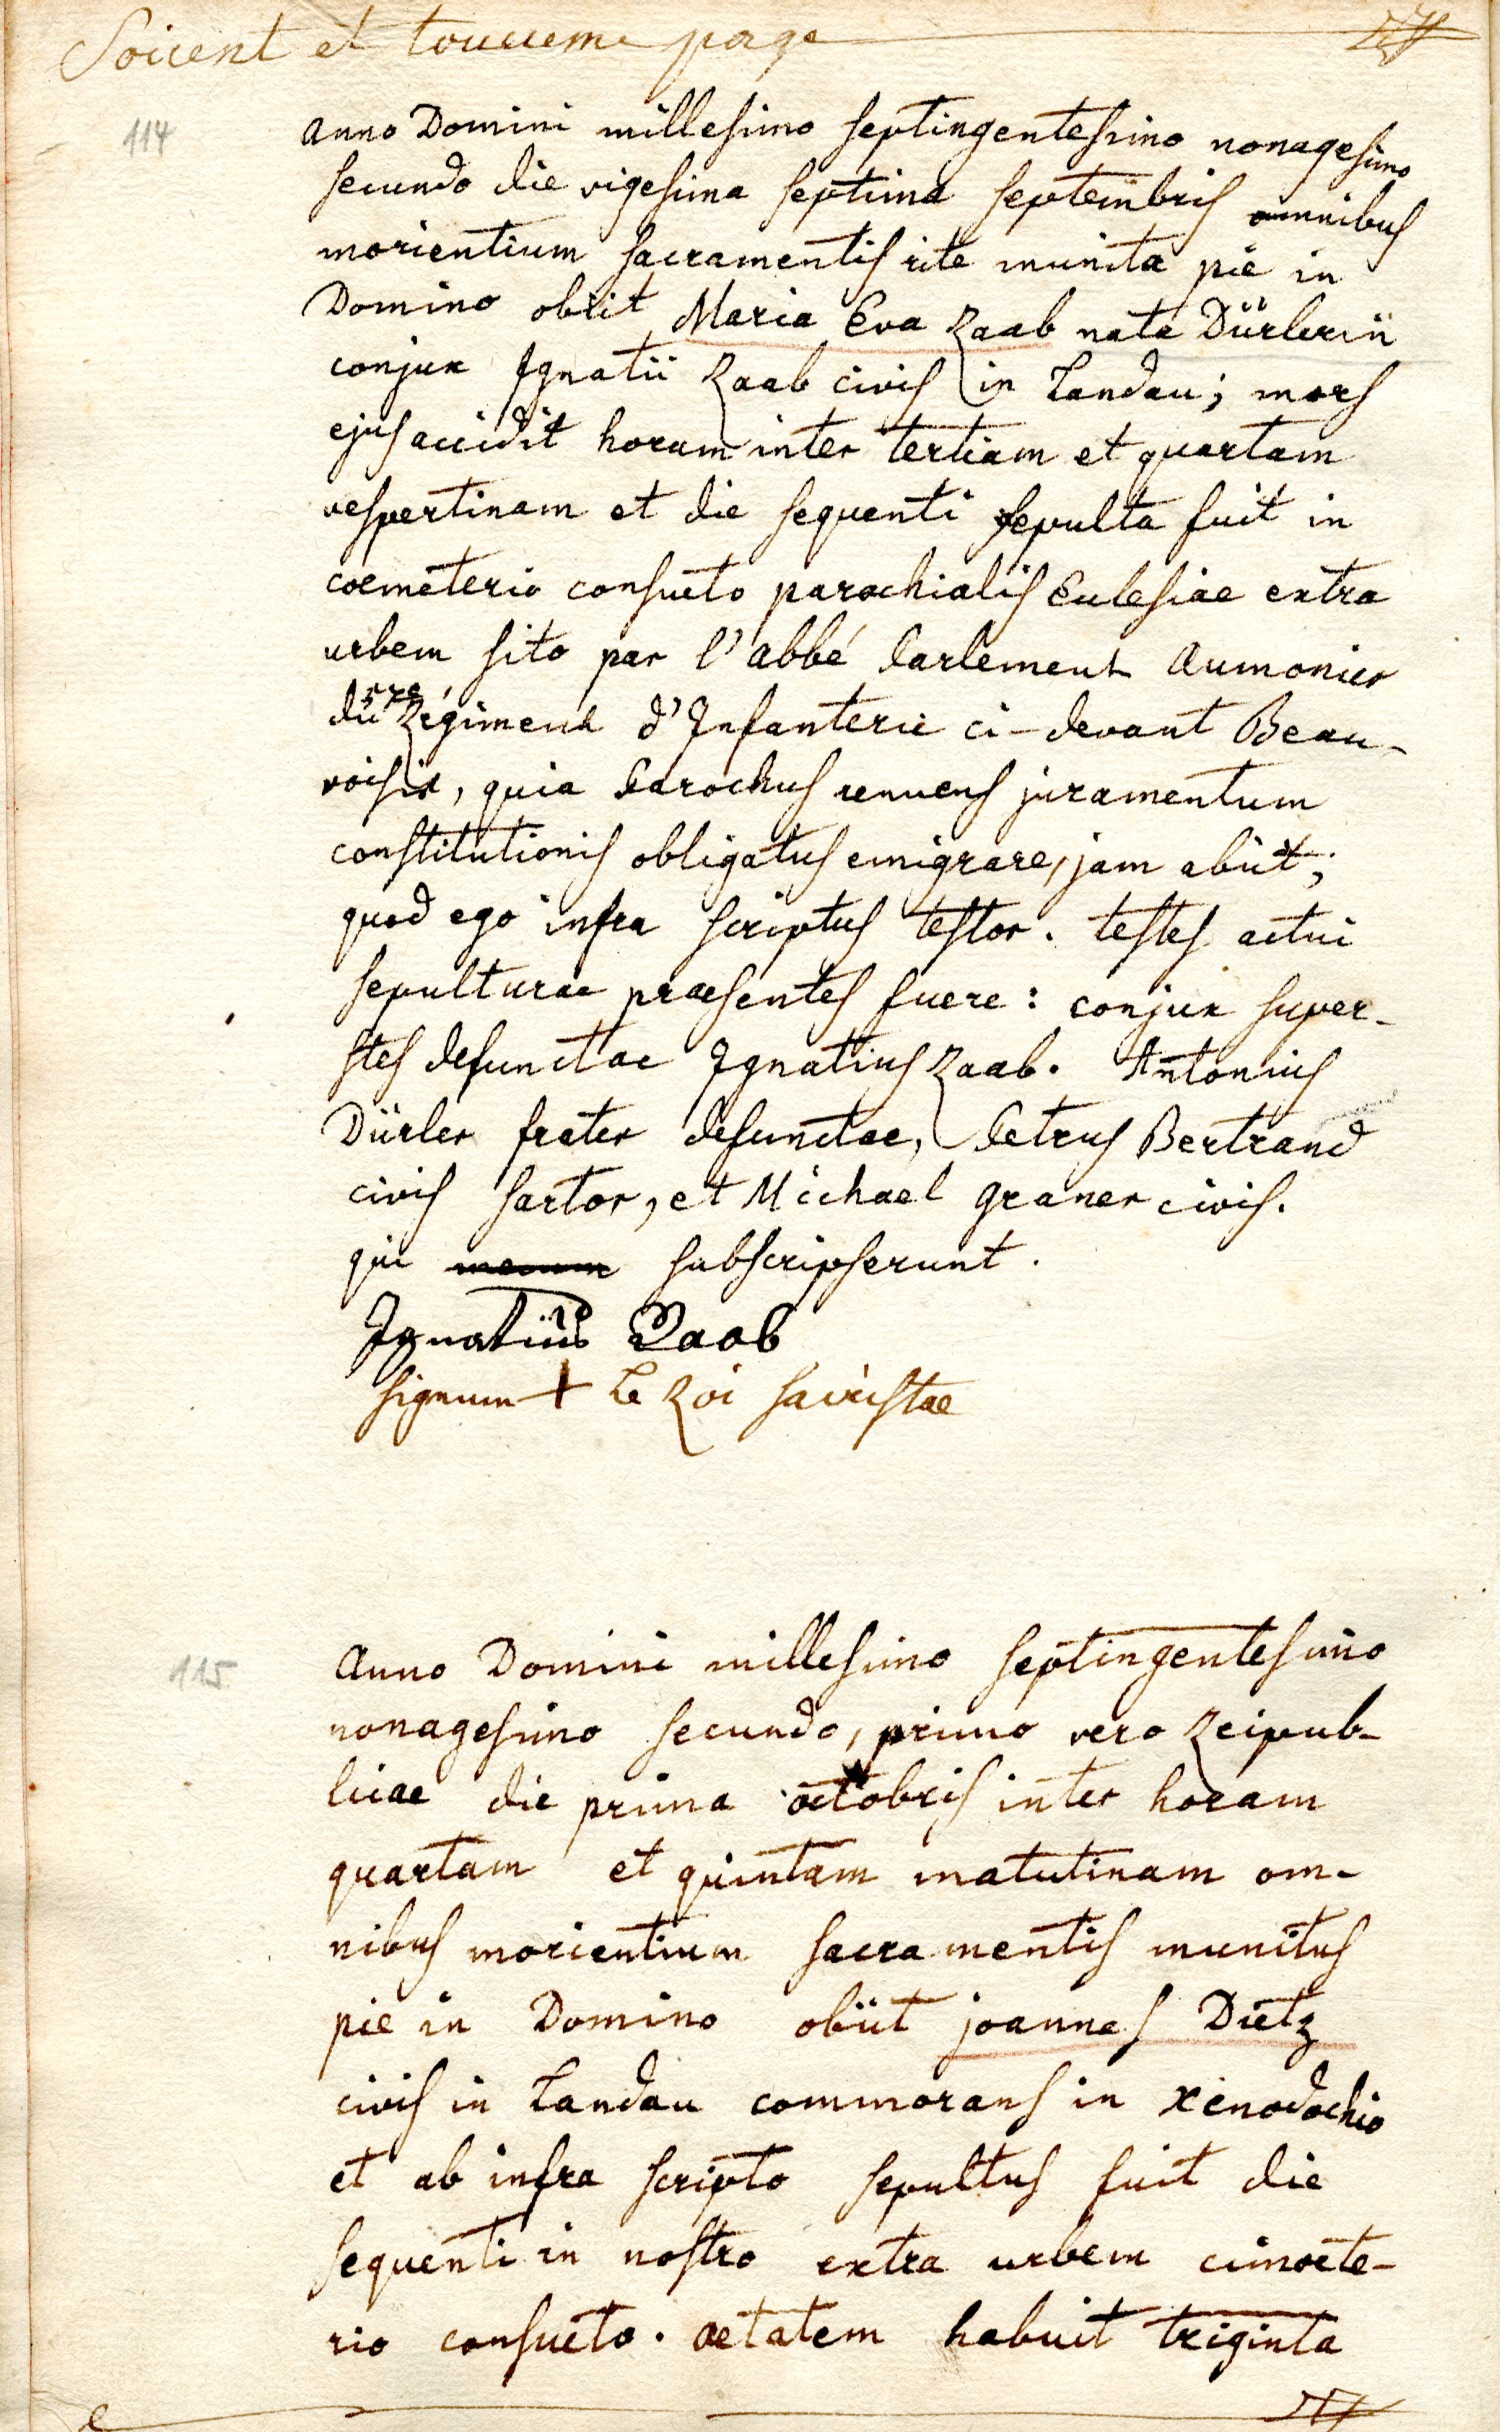 Soicent et toucceme page
114
Anno Domini millesimo septingentesimo nonagesimo
secundo die vigesima septima septembris omnibus
morientium sacramentis rite munita pie in
Domino obiit Maria Eva Raab nata Dürlerin
conjux Ignatii Raab civis in Landau; mors
ejus accidit horam inter tertiam et quartam
vespertinam et die sequenti sepulta fuit in
coemeterio consueto parochialis Ecclesiae extra
urbem sito par l'abbé Parlement Aumonier
du Régiment d'Infanterie ci-devant Beau-
voisis, quia Parochus renuens juramentum
constitutionis obligatus emigrare, jam abiit;
quod ego infra scriptus testor. testes actui
sepulturae praesentes fuere: conjux super-
stes defunctae Ignatius Raab. Antonius
Dürler frater defunctae, Petrus Bertrand
civis sartor, et Michael Graner civis.
qui mecum subscripserunt.
Ignatius Raab
signum + Le Roi sacristae
115
Anno Domini millesimo septingentesimo
nonagesimo secundo, primo vero Reipub-
licae die prima octobris inter horam
quartam et quintam matutinam om-
nibus morientium sacramentis munitus
pie in Domino obiit joannes Dietz
civis in Landau commorans in xenodochio
et ab infra scripto sepultus fuit die
sequenti in nostro extra urbem cimoete-
rio consueto. aetatem habuit triginta